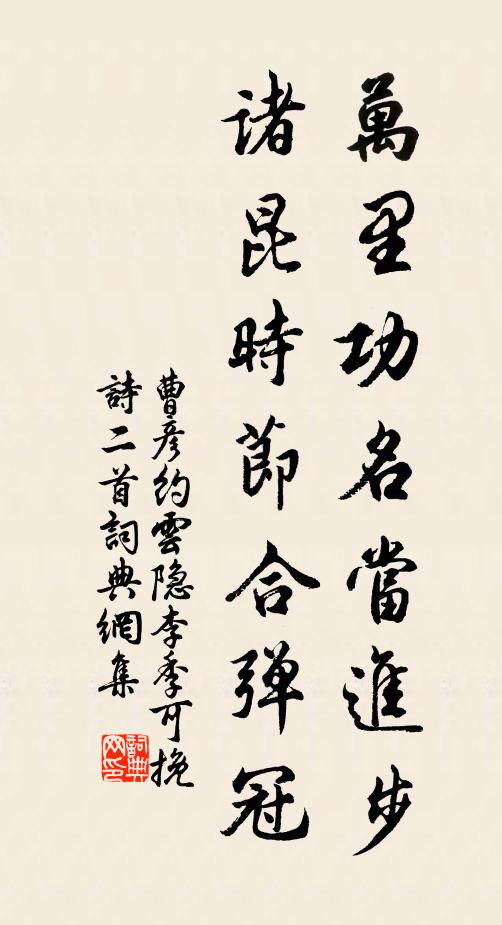 萬里功名當進步
諸昆時節合弹冠
曹彦約雲隐李季可挽
詩二首詞典網集
詞典
网印